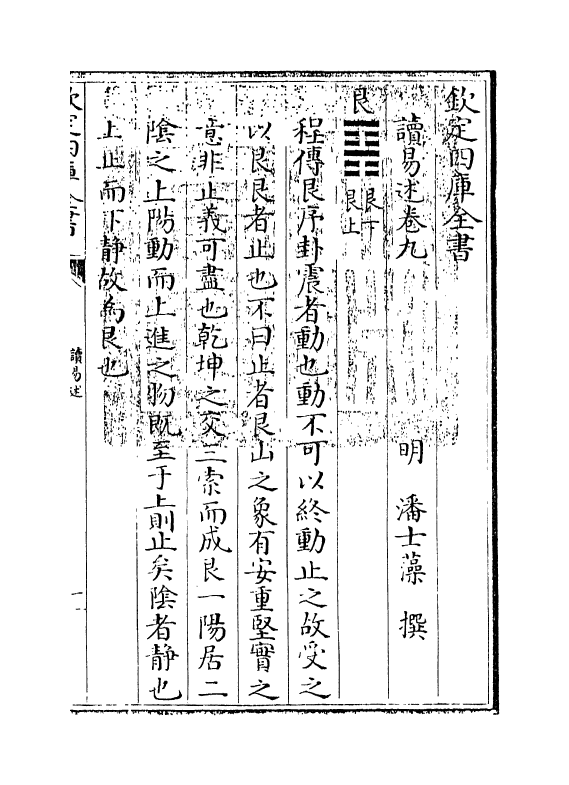 欽定四庫全書
讀易述卷九
明 潘士藻 撰
艮 艮下艮上
程傳艮序卦震者動也動不可以終動止之故受之
以艮艮者止也不曰止者艮山之象有安重堅實之
意非止義可盡也乾坤之交三索而成艮一陽居二
陰之上陽動而上進之物既至于上則止矣陰者静也
上止而下静故為艮也
欽定四庫全書
讀易述
一